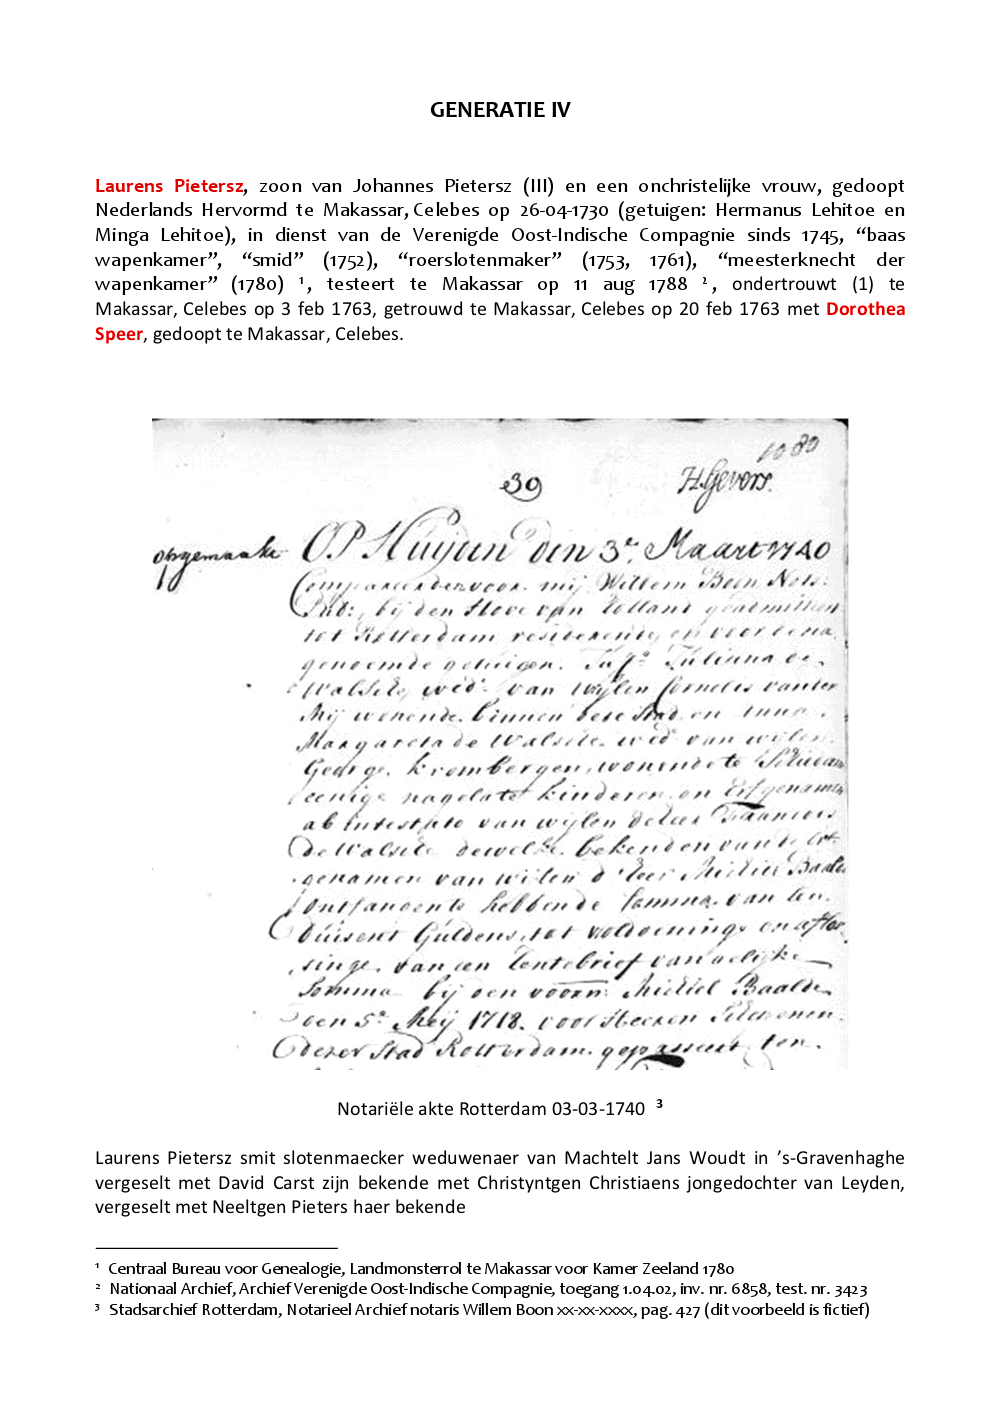 GENERATIE IV
Laurens Pietersz, zoon van Johannes Pietersz (III) en een onchristelijke vrouw, gedoopt
Nederlands Hervormd te Makassar, Celebes op 26-04-1730 (getuigen: Hermanus Lehitoe en
Minga Lehitoe), in dienst van de Verenigde Oost-Indische Compagnie sinds 1745, “baas
wapenkamer”, “smid” (1752), “roerslotenmaker” (1753, 1761), “meesterknecht der
wapenkamer” (1780) ¹, testeert te Makassar op 11 aug 1788 ², ondertrouwt (1) te
Makassar, Celebes op 3 feb 1763, getrouwd te Makassar, Celebes op 20 feb 1763 met Dorothea
Speer, gedoopt te Makassar, Celebes.
1080
39 H. Gevers.
opgemaakt OP Huijden den 3e. Maart 1740
Compareerden voor mij Willem Boon, Nots:
Pub:, bij den Hove van Holland geadmitteert
tot Rotterdam residerende, en voor de na.
genoemde getuigen. Juffe. Julianna de
Walsite, wede. van wijlen Cornelis van der
Mij wonende binnen dese Stad, en Anna
Margareta de Walsite. wed. van wijlen
George Krombergen, wonende te Schiedam
eenige nagelate kinderen en Erfgenamen
ab intestato van wijlen de heer Francois
de Walsite dewelke bekenden van de Erf-
genamen van wijlen d'heer Michiel Baalde
ontfangen te hebbende Somma van een
Duisent Guldens, tot voldoening en aflos-
singe van een Rentebrief van gelijke
Somma bij den voorn: Michiel Baalde
den 5e. Meij 1718. voor Heeren Schepenen
dezer Stad Rotterdam gepasseert, ten
Notariële akte Rotterdam 03-03-1740 ³
Laurens Pietersz smit slotenmaecker weduwenaer van Machtelt Jans Woudt in ’s-Gravenhaghe
vergeselt met David Carst zijn bekende met Christyntgen Christiaens jongedochter van Leyden,
vergeselt met Neeltgen Pieters haer bekende
¹ Centraal Bureau voor Genealogie, Landmonsterrol te Makassar voor Kamer Zeeland 1780
² Nationaal Archief, Archief Verenigde Oost-Indische Compagnie, toegang 1.04.02, inv. nr. 6858, test. nr. 3423
³ Stadsarchief Rotterdam, Notarieel Archief notaris Willem Boon xx-xx-xxxx, pag. 427 (dit voorbeeld is fictief)